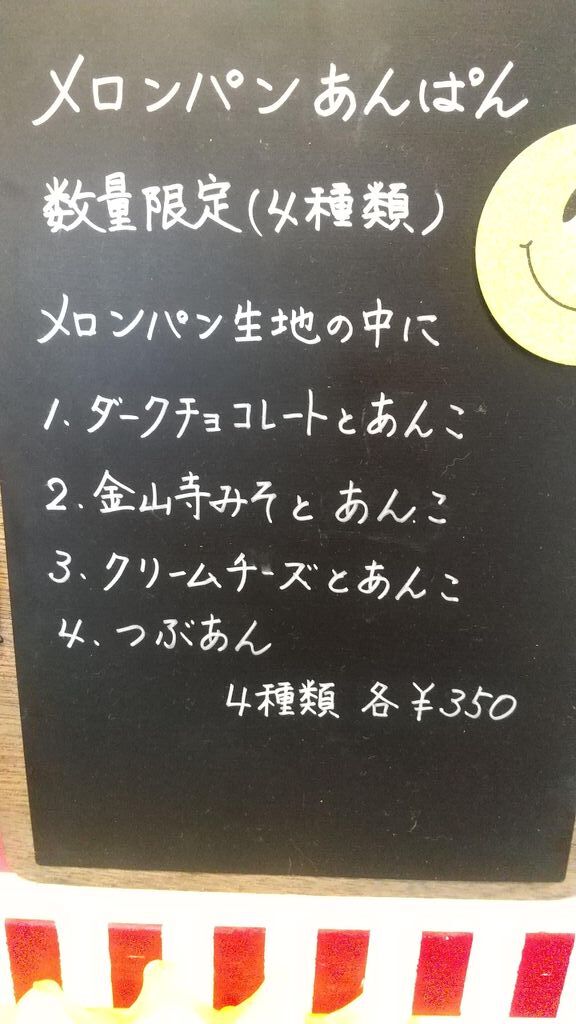 メロンパンあんぱん
数量限定(4種類)
メロンパン生地の中に
1.ダークチョコレートとあんこ
2.金山寺みそとあんこ
3.クリームチーズとあんこ
4.つぶあん
4種類 各¥350